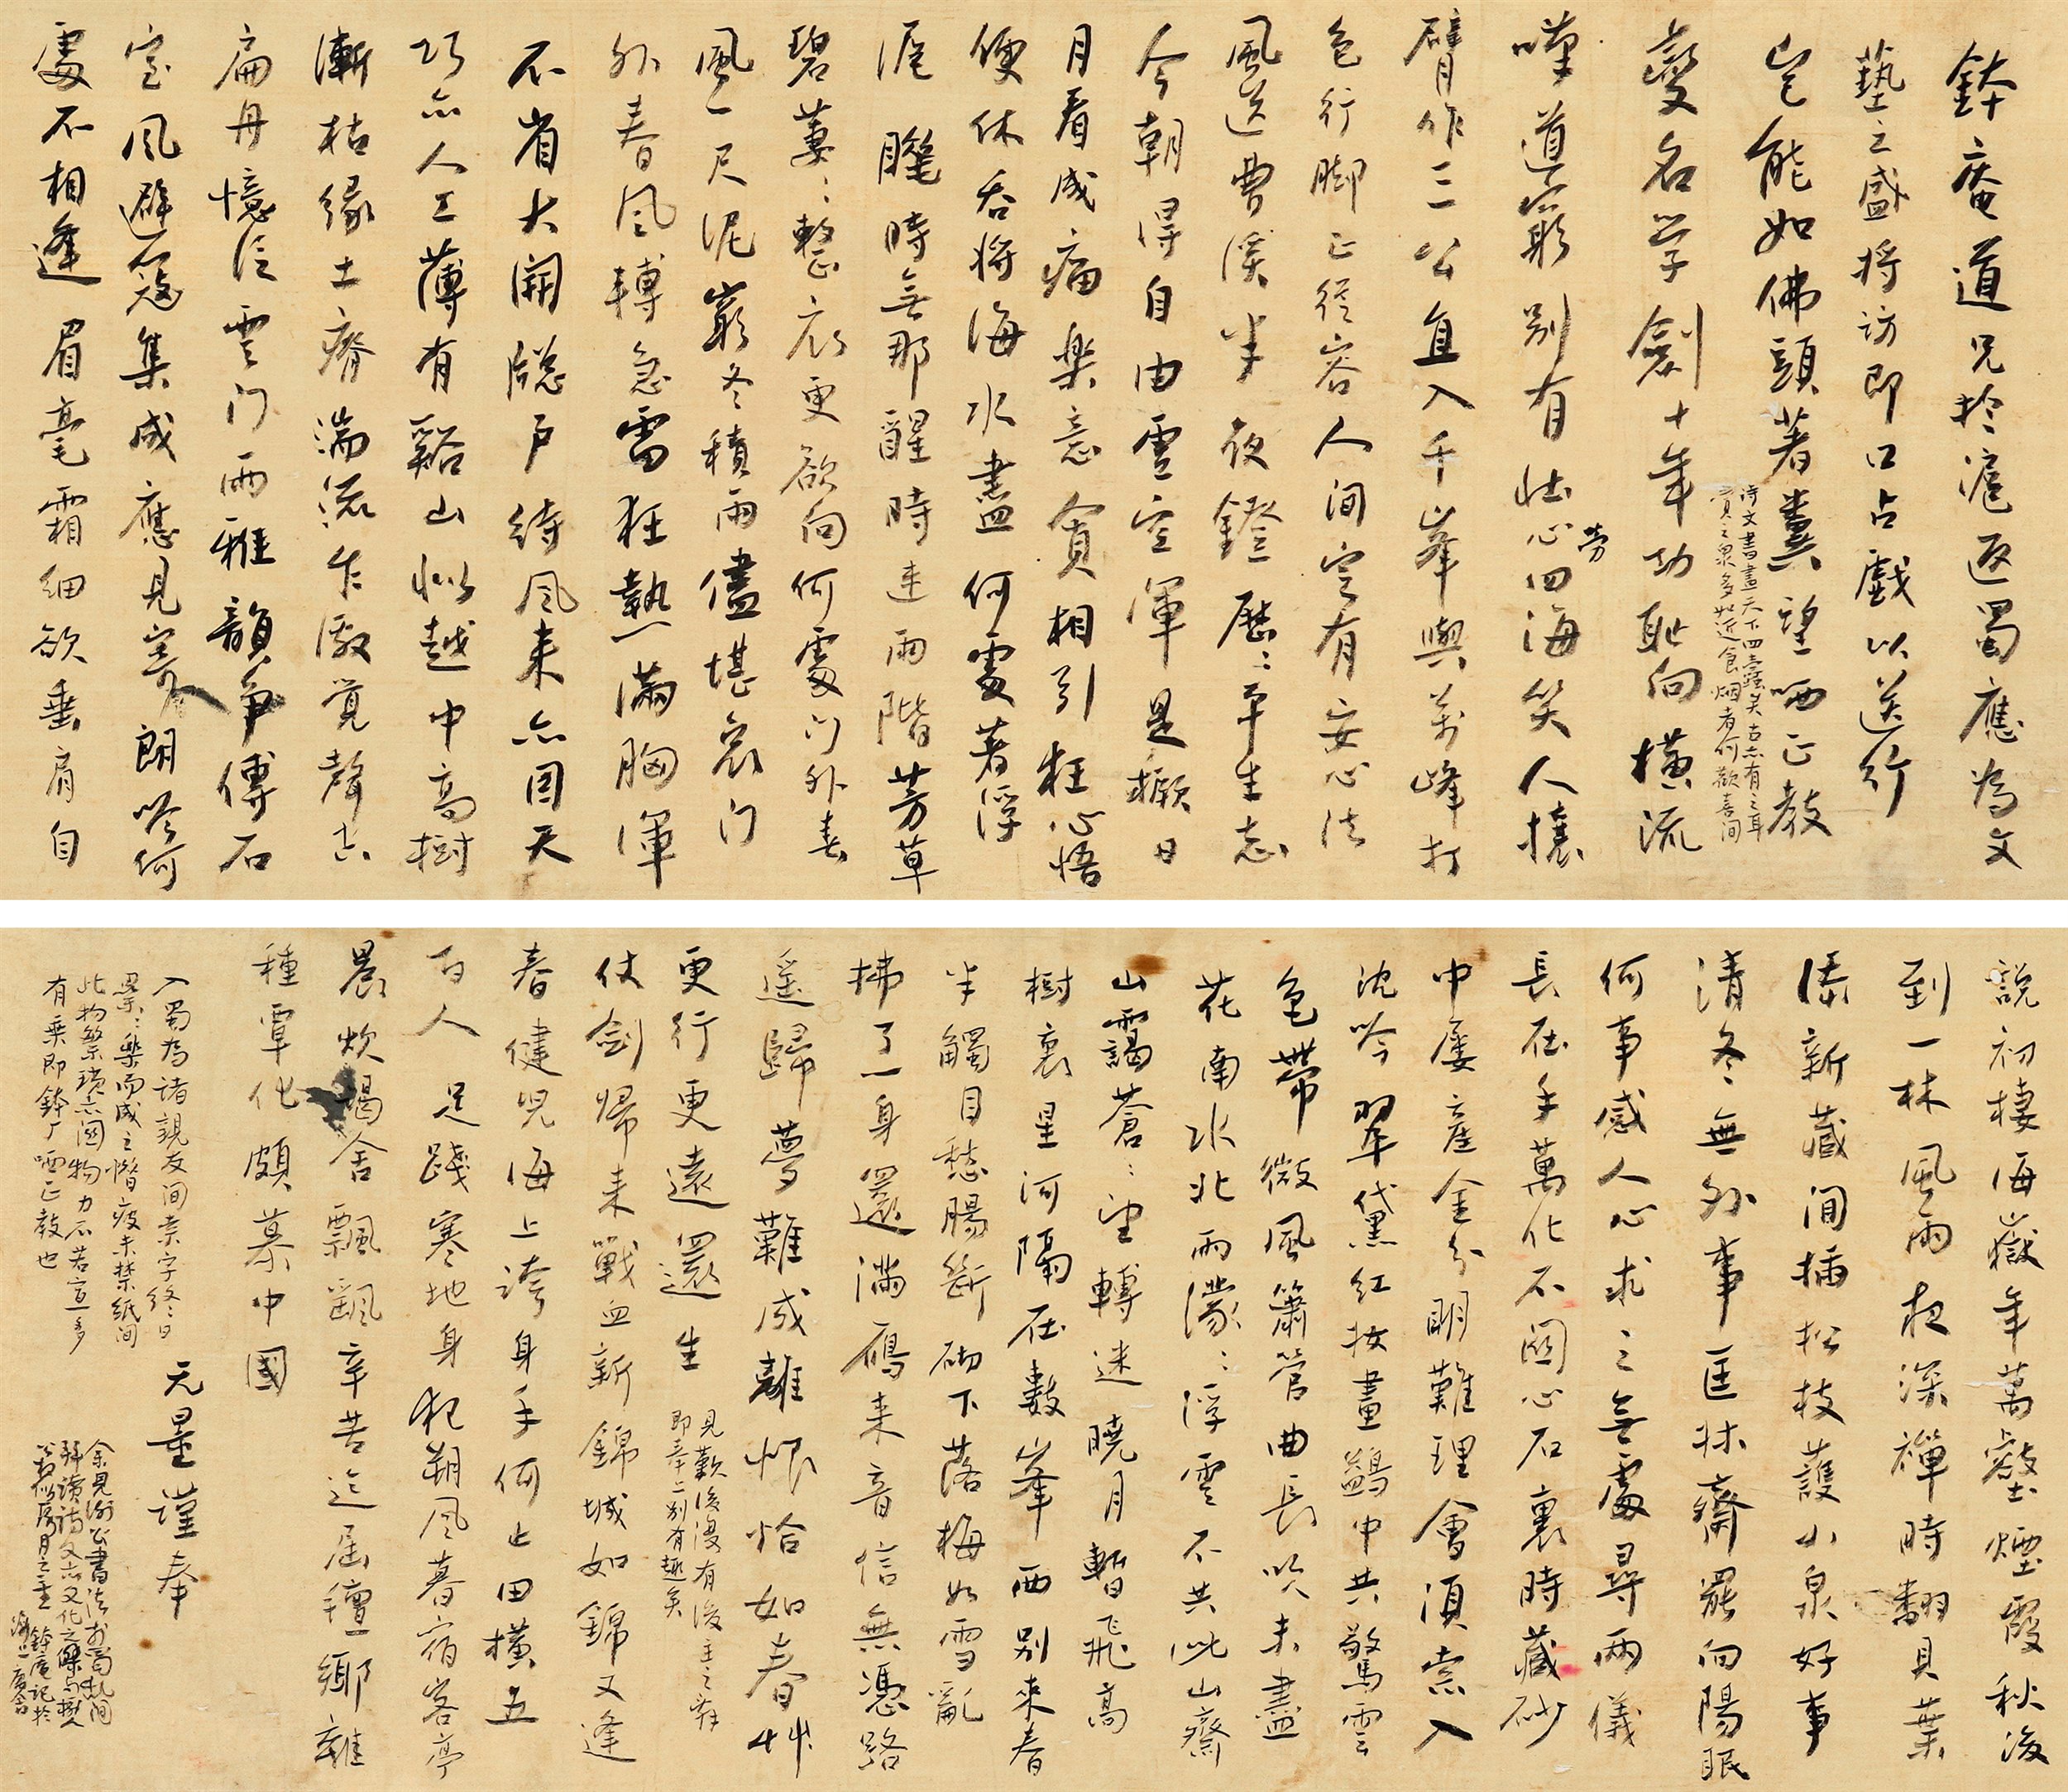 鉢庵道兄於滬返蜀應為文
藝之盛將訪即口占戲以送行
豈能如佛頭著糞望哂正教
詩文書畫天下四蠹矣古亦有之耳
賓之眾多如近食烟者何歡喜間
愛名學劍十年功耻向橫流
嘆道窮別有壯心四海笑人攘
勞
臂作三公直入千峯與萬峰打
包行脚正從容人間定有安心法
風送曹溪半夜鐙歷歷平生志
今朝得自由虛空渾是橛日
月看成痛樂意貪相引狂心悟
便休吞將海水盡何處著浮
漚 朧時無那醒時迷雨階芳草
碧萋萋整衣更欲向何處門外春
風一尺泥窮冬積雨儘堪哀門
外春風轉急雷狂熱一滿胸渾
不省大開牕戶待風來亦因天
巧亦人工薄有谿山似越中高樹
漸枯緣土瘠湍流乍激覺聲吉
扁舟憶泛雲門雨雅韻爭傳石
室風避寇集成應見寄朗吟何
處不相逢 眉毫霜細欲垂肩自
說初棲海嶽年萬壑煙霞秋後
到一林風雨夜深禪時翻貝葉
添新藏閒插松枝護小泉好事
清冬無外事匡牀齋罷向陽眠
何事感人心求之無處尋兩儀
長在手萬化不關心石裏時藏砂
中屢產金分明難理會須索入
沈吟 翠黛紅妝畫鷁中共驚雲
色帶微風簫管曲長吹未盡
花南水北雨濛濛浮雲不共此山齊
山靄蒼蒼望轉迷曉月暫飛高
樹裏星河隔在數峯西別來春
半觸目愁腸斷砌下落梅如雪亂
拂了一身還滿鴈來音信無憑路
遥歸夢難成離恨恰如春艸
更行更遠還生
見歎後漫有後主之辭
即奉二別有趣矣
仗劍歸來戰血新錦城如錦又逢
春健兒海上誇身手何止田橫五
百人 足踐寒地身犯朔風暮宿客亭
晨炊謁舍飄颻辛苦迄屆氊鄉雜
種覃化頗慕中國
入蜀為諸親友間索字終終日
累累樂而成之惟疲未禁紙間
此物繁瑣亦關物力不若宣多
有乘即鉢厂哂正教也
无量謹奉
余見謝公書法於蜀執間